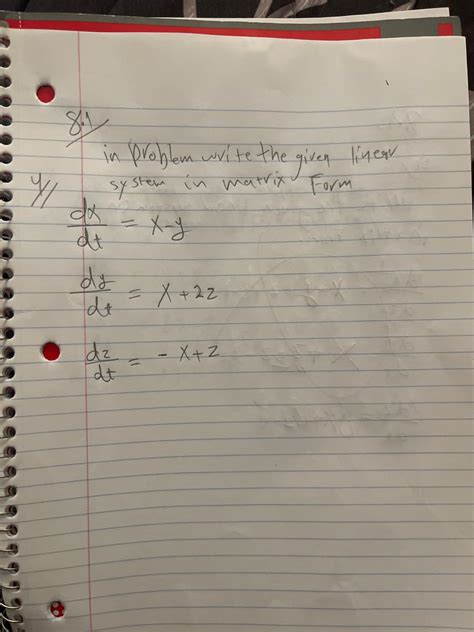 8.1
in problem write the given linear
system in matrix Form
4//
dx/dt = x-y
dy/dt = x+2z
dz/dt = -x+z